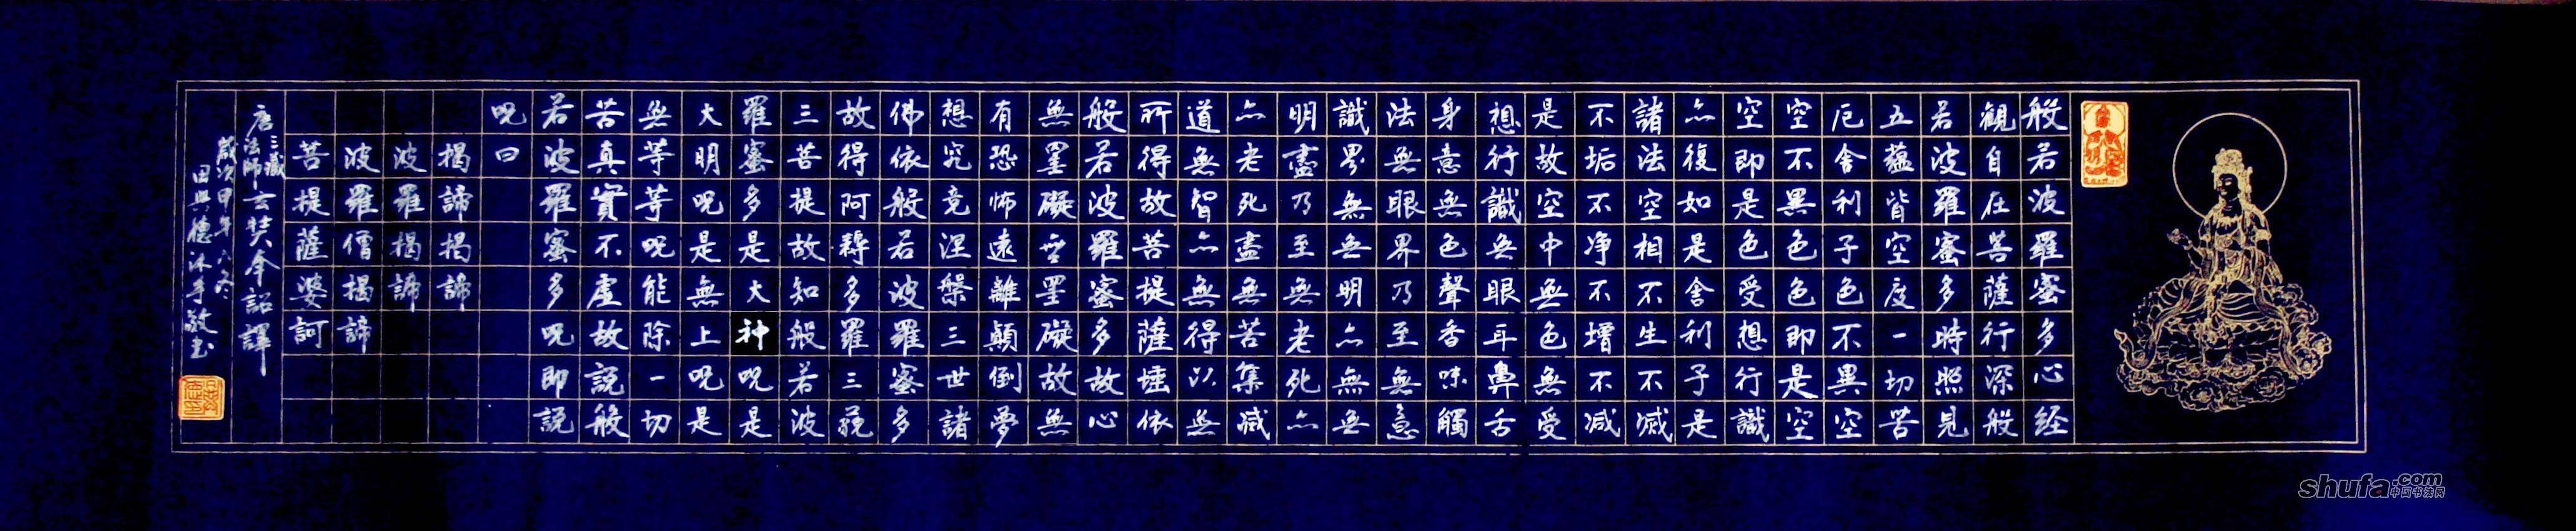 般若波羅蜜多心经
觀自在菩薩行深般
若波羅蜜多時照見
五蘊皆空度一切苦
厄舍利子色不異空
空不異色色即是空
空即是色受想行識
亦復如是舍利子是
諸法空相不生不滅
不垢不净不增不减
是故空中無色無受
想行識無眼耳鼻舌
身意無色聲香味觸
法無眼界乃至無意
識界無無明亦無無
明盡乃至無老死亦
亦老死盡無苦集减
道無智亦無得以無
所得故菩提薩埵依
般若波羅蜜多故心
無罣礙無罣礙故無
有恐怖遠離顛倒夢
想究竟涅槃三世諸
佛依般若波羅蜜多
故得阿耨多羅三藐
三菩提故知般若波
羅蜜多是大神呪是
大明呪是無上呪是
無等等呪能除一切
苦真實不虚故說般
若波羅蜜多呪即說
呪曰
揭諦揭諦
波羅揭諦
波羅僧揭諦
菩提薩婆訶
唐三藏法師玄奘奉詔譯
歲次甲午
田興德沐手敬书
shufa.com
中国书法网